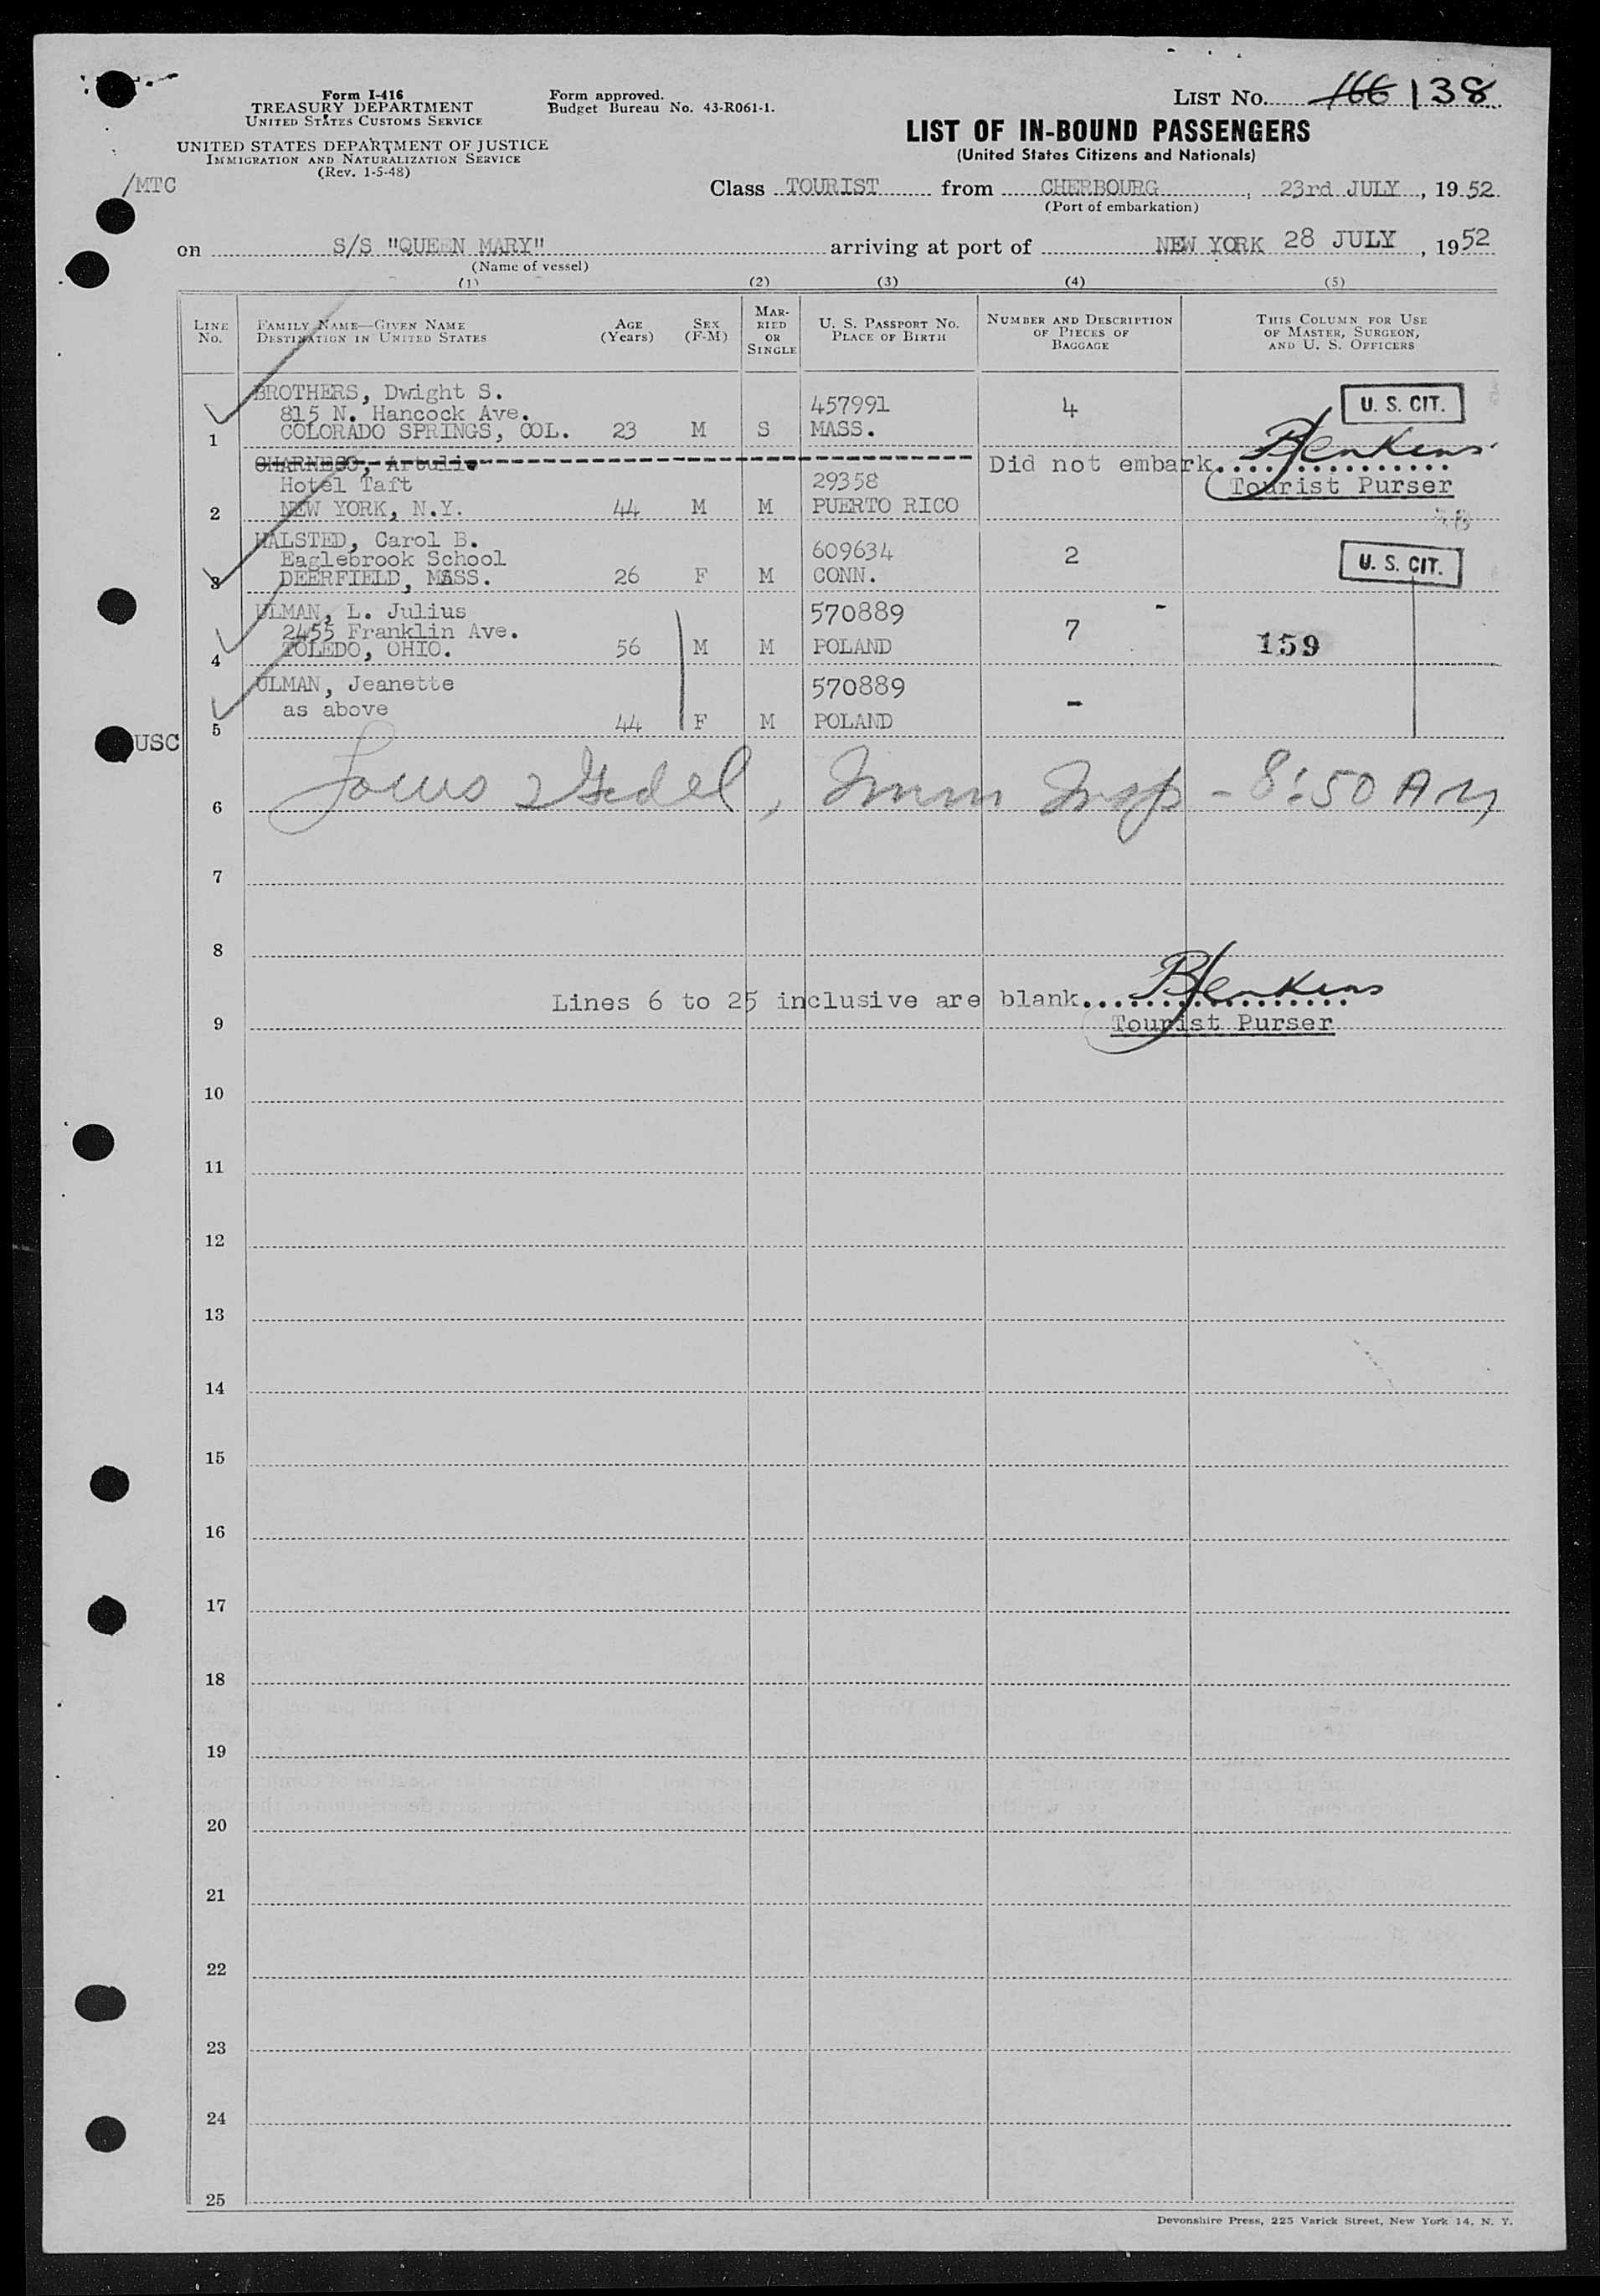 Form I-416
TREASURY DEPARTMENT
UNITED STATES CUSTOMS SERVICE
UNITED STATES DEPARTMENT OF JUSTICE
IMMIGRATION AND NATURALIZATION SERVICE
(Rev. 1-5-48)
/MTC
Form approved.
Budget Bureau No. 43-R061-1.
LIST No. 166 138
LIST OF IN-BOUND PASSENGERS
(United States Citizens and Nationals)
Class TOURIST from CHERBOURG, 23rd JULY, 1952
(Port of embarkation)
on S/S "QUEEN MARY" arriving at port of NEW YORK 28 JULY, 1952
(Name of vessel)
(1) (2) (3) (4) (5)
LINE No.
FAMILY NAME—GIVEN NAME
DESTINATION IN UNITED STATES
AGE (Years)
SEX (F-M)
MARRIED OR SINGLE
U. S. PASSPORT No.
PLACE OF BIRTH
NUMBER AND DESCRIPTION OF PIECES OF BAGGAGE
THIS COLUMN FOR USE OF MASTER, SURGEON, AND U. S. OFFICERS
BROTHERS, Dwight S. 457991 4 U. S. CIT.
815 N. Hancock Ave.
1 COLORADO SPRINGS, COL. 23 M S MASS.
CHARNECO, Artulio Did not embark. BJenkins
Hotel Taft 29358 Tourist Purser
2 NEW YORK, N.Y. 44 M M PUERTO RICO
HALSTED, Carol B. 609634 2 U. S. CIT.
Eaglebrook School
3 DEERFIELD, MASS. 26 F M CONN.
ULMAN, L. Julius 570889 7
2455 Franklin Ave.
4 TOLEDO, OHIO. 56 M M POLAND 159
ULMAN, Jeanette 570889 -
as above
5 44 F M POLAND
USC
6 Imm Insp - 8:50 AM
7
8
Lines 6 to 25 inclusive are blank. BJenkins
9 Tourist Purser
10
11
12
13
14
15
16
17
18
19
20
21
22
23
24
25
Devonshire Press, 225 Varick Street, New York 14, N. Y.